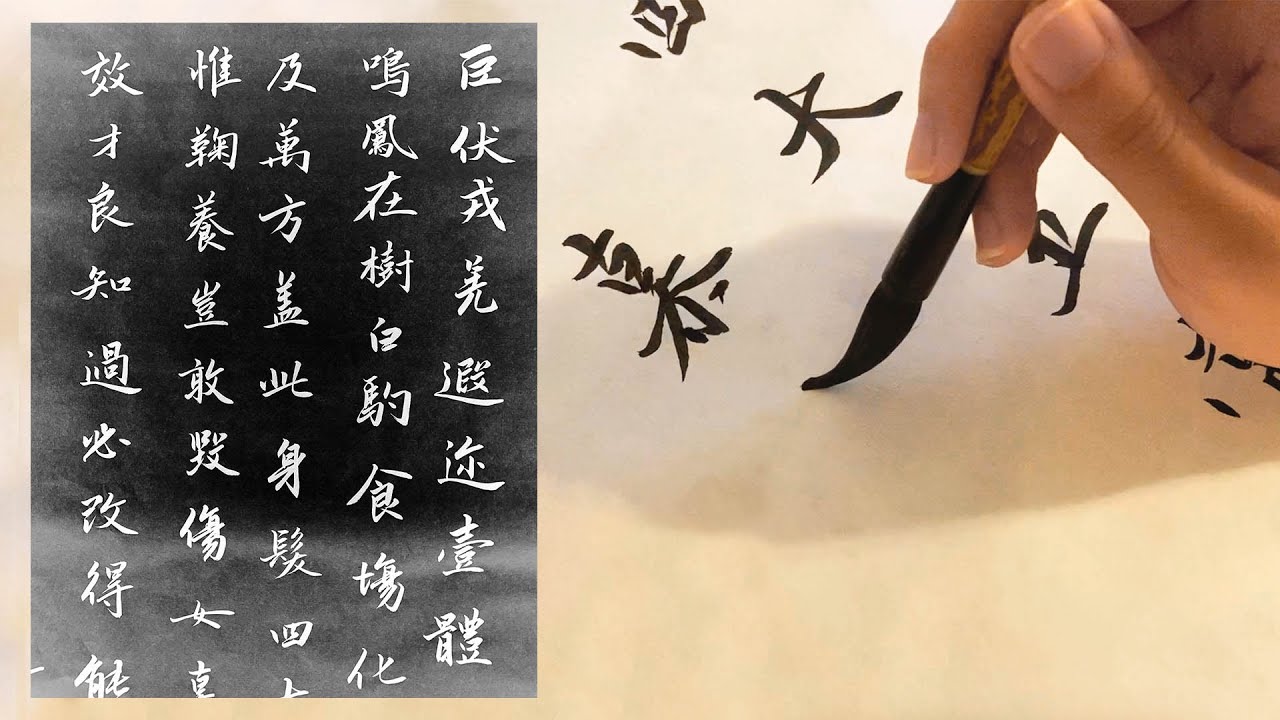 臣伏戎羌遐迩壹體
鳴鳳在樹白駒食塲化
及萬方盖此身髮四
惟鞠養豈敢毀傷女
效才良知過必改得能